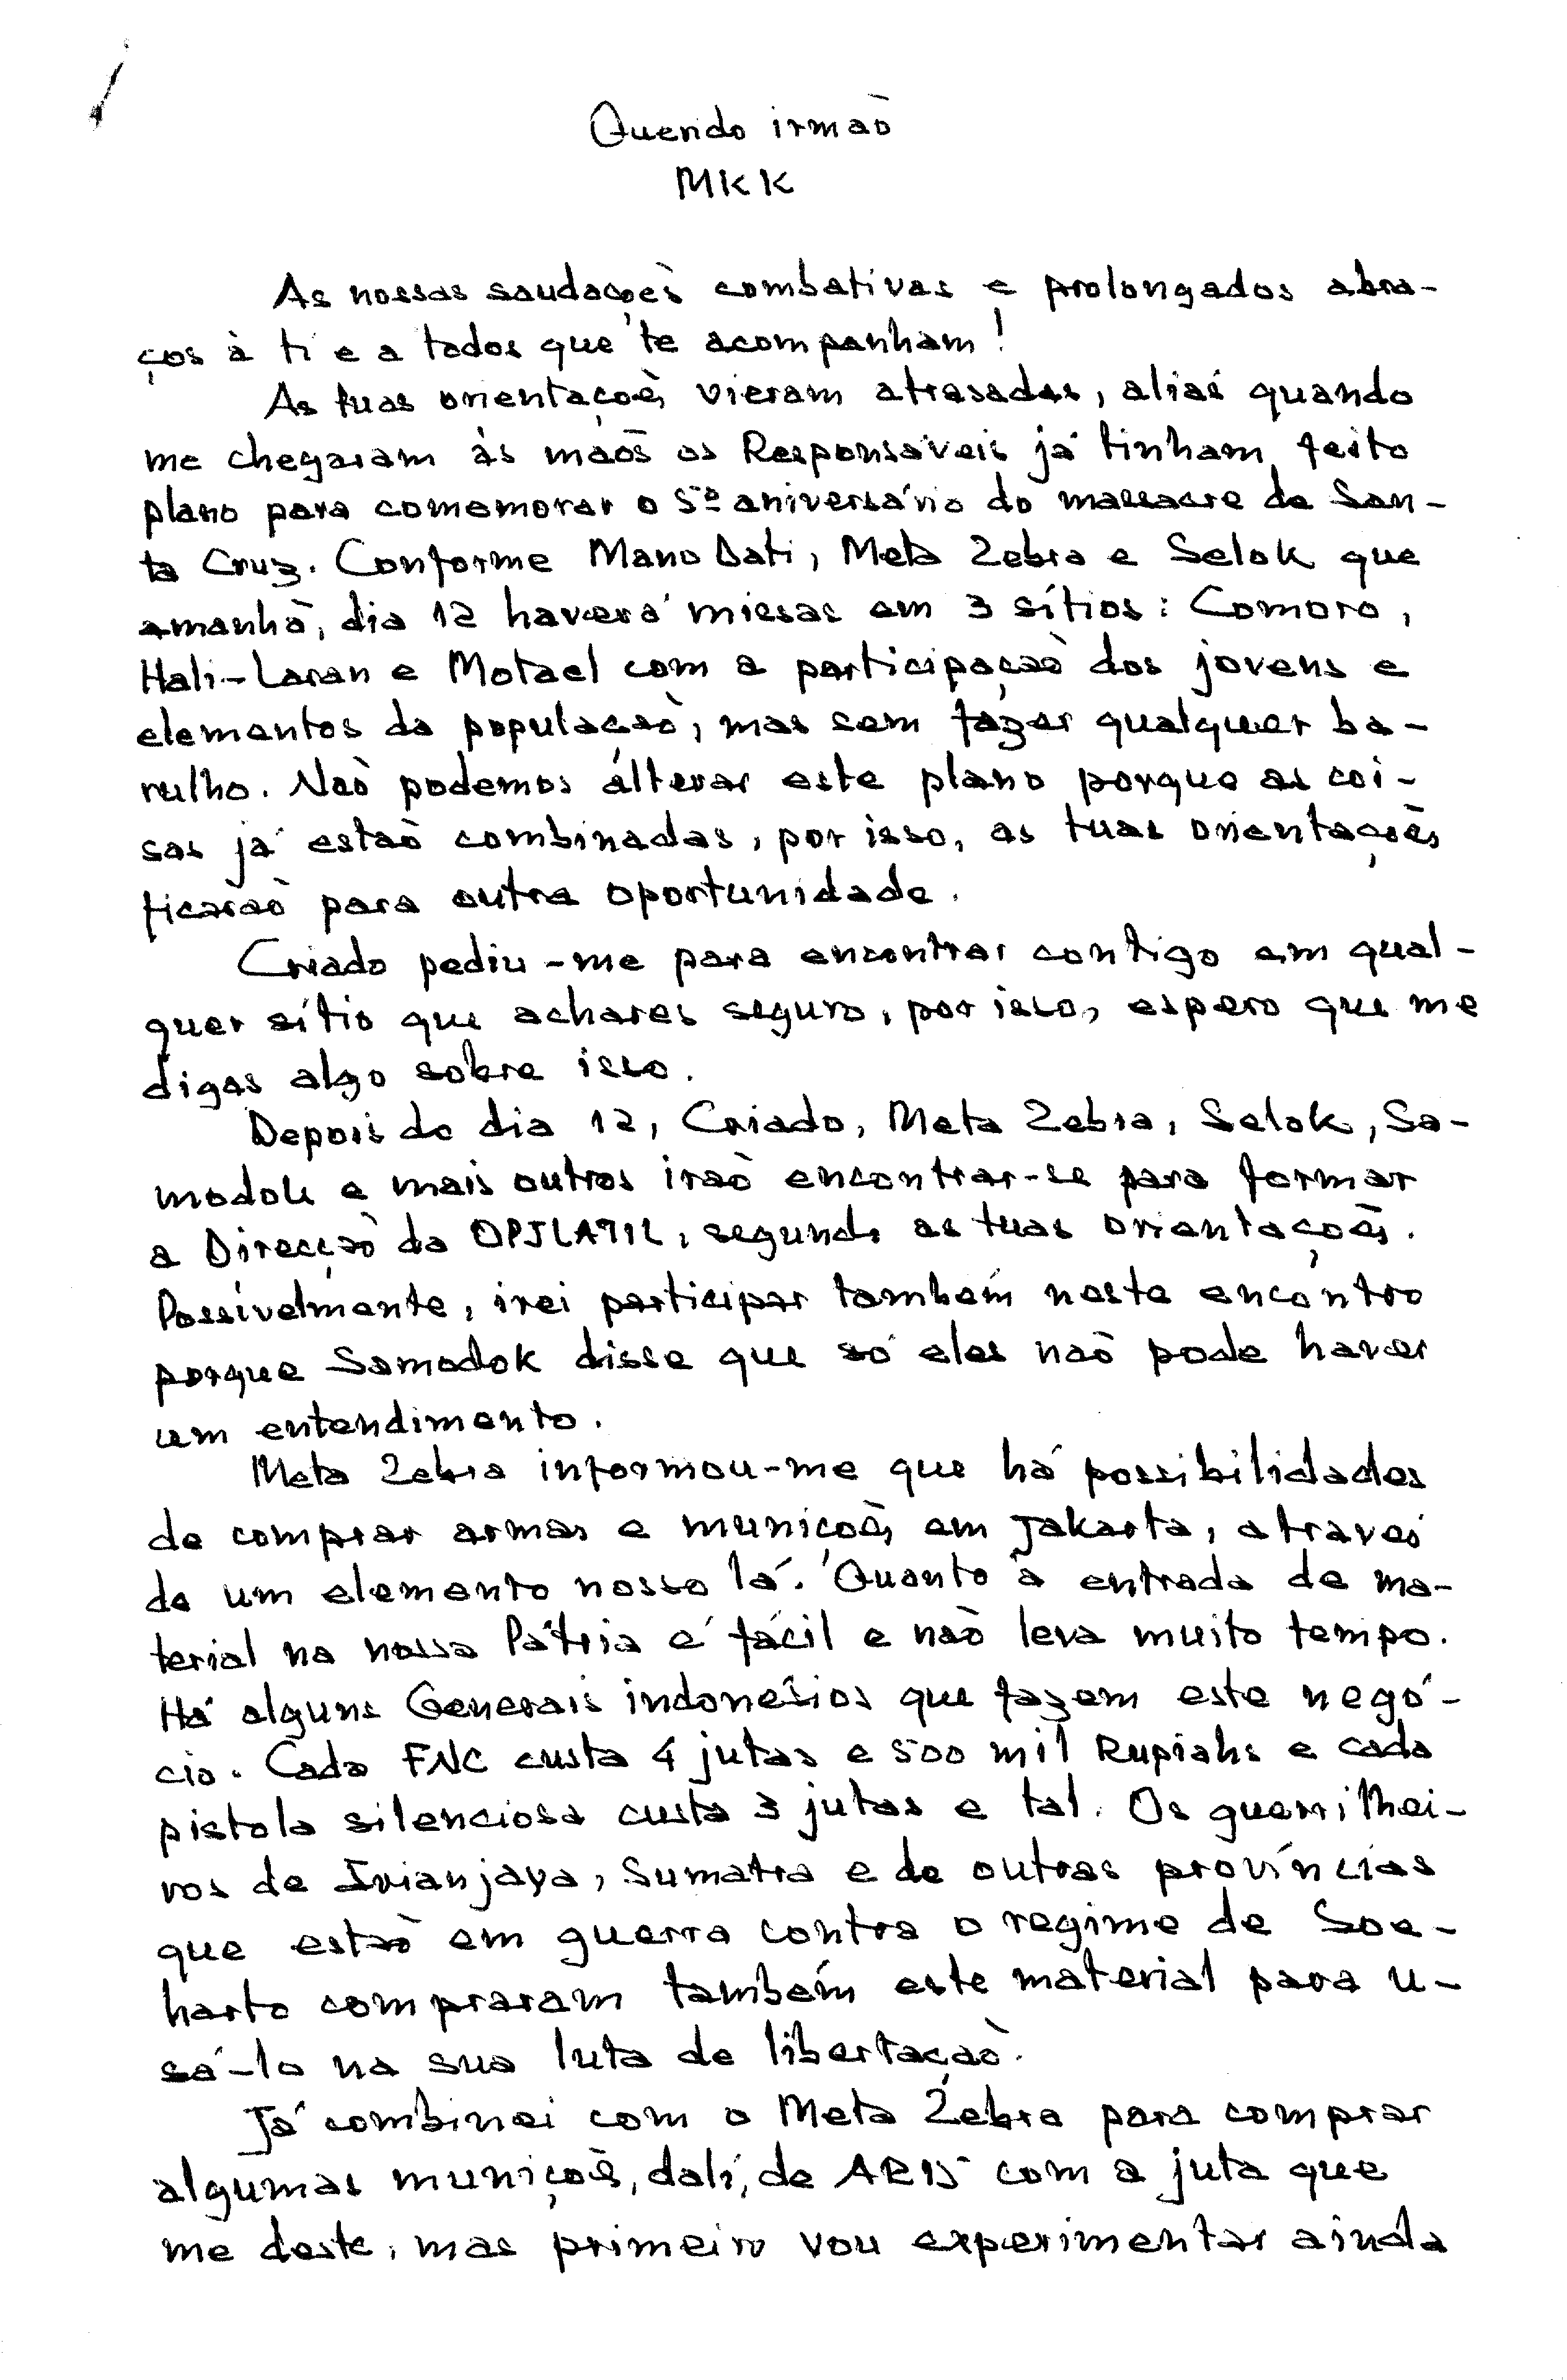 Querido irmão
MKK
As nossas saudações combativas e prolongados abra-
ços à ti e a todos que te acompanham!
As tuas orientações vieram atrasadas, aliás quando
me chegaram às mãos os Responsáveis já tinham feito
plano para comemorar o 5º aniversário do massacre de San-
ta Cruz. Conforme Mano Dati, Meta Zebra e Selok que
amanhã, dia 12 haverá missas em 3 sítios: Comoro,
Hali-Laran e Motael com a participação dos jovens e
elementos da população, mas sem fazer qualquer ba-
rulho. Não podemos alterar este plano porque as coi-
sas já estão combinadas, por isso, as tuas orientações
ficarão para outra oportunidade.
Criado pediu-me para encontrar contigo em qual-
quer sítio que achares seguro, por isso, espero que me
digas algo sobre isso.
Depois do dia 12, Criado, Meta Zebra, Selok, Sa-
modok e mais outros irão encontrar-se para formar
a Direcção da OPJLATIL, segundo as tuas orientações.
Possívelmente, irei participar também neste encontro
porque Samodok disse que só eles não pode haver
um entendimento.
Meta Zebra informou-me que há possibilidades
de comprar armas e munições em Jakarta, através
de um elemento nosso lá. Quanto à entrada de ma-
terial na nossa Pátria é fácil e não leva muito tempo.
Há alguns Generais indonésios que fazem este negó-
cio. Cada FNC custa 4 jutas e 500 mil Rupiahs e cada
pistola silenciosa custa 3 jutas e tal. Os guerrilhei-
ros de Irianjaya, Sumatra e de outras províncias
que estão em guerra contra o regime de Soe-
harto compraram também este material para u-
sá-lo na sua luta de libertação.
Já combinei com o Meta Zebra para comprar
algumas munições, dali, de AR15 com a juta que
me deste, mas primeiro vou experimentar ainda